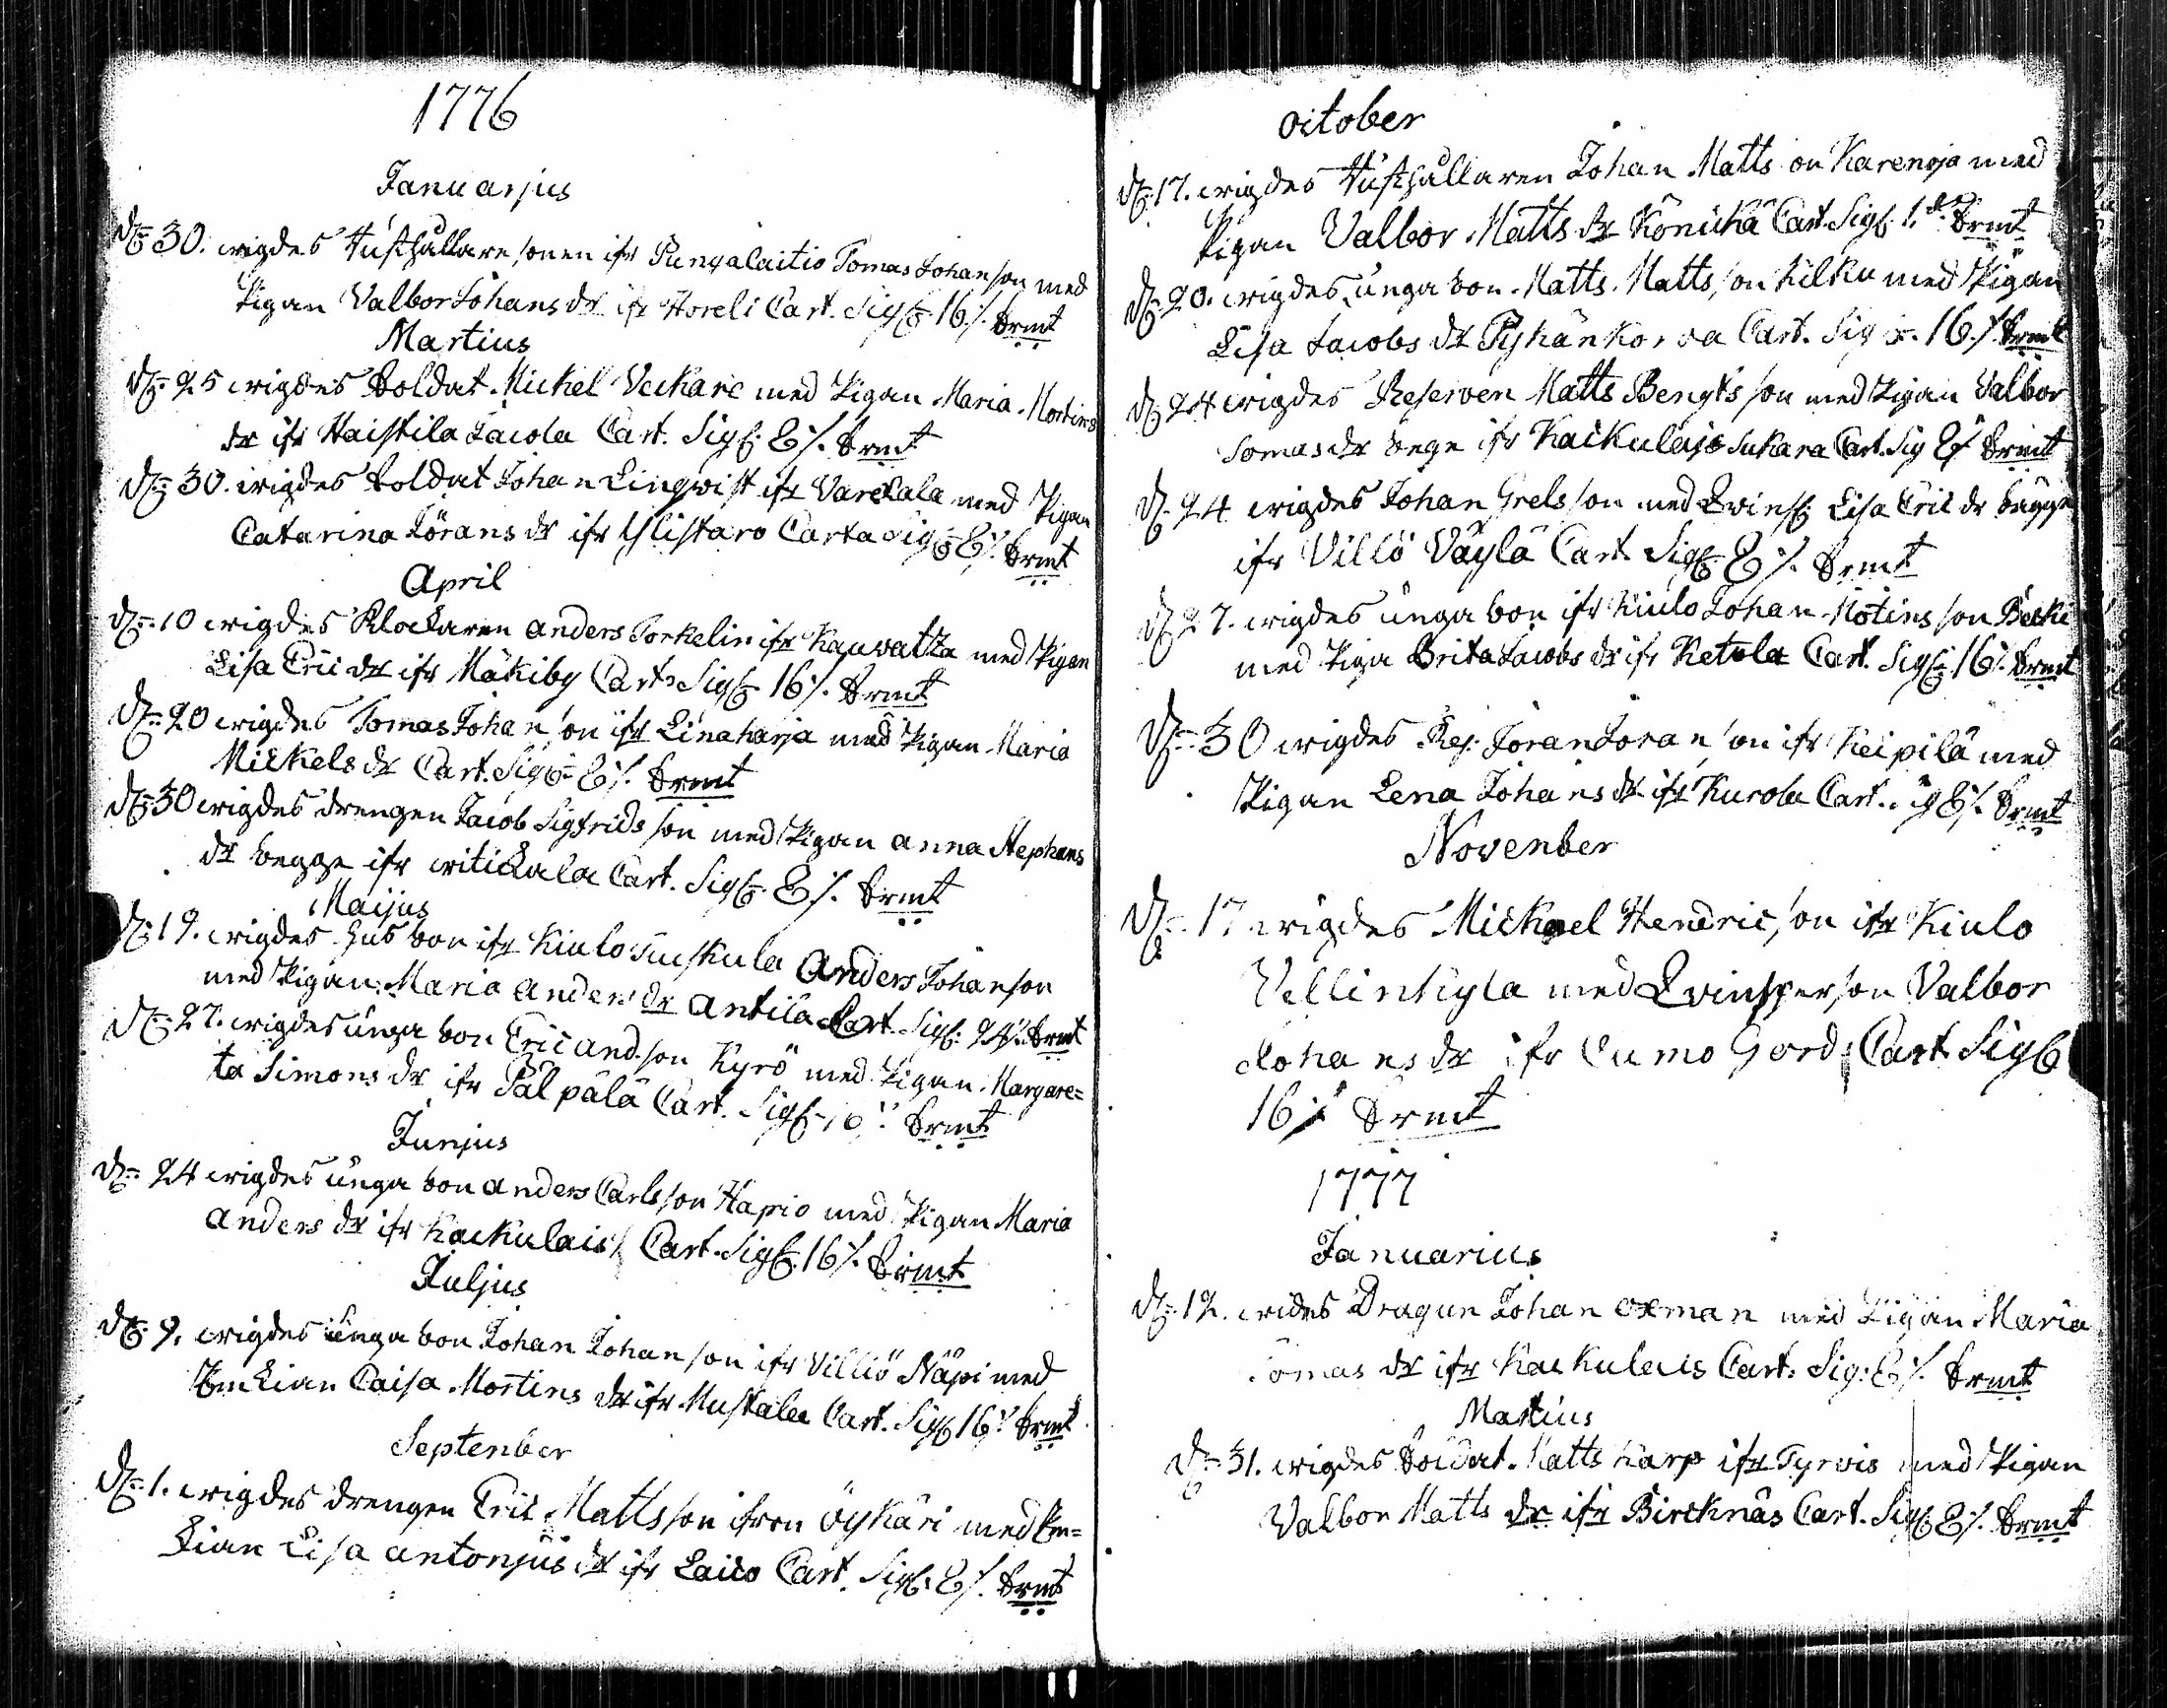 1776
Januarjus
d. 30. wigdes Hushållare sonen ifr Pungalaitio Tomas Johanson med
Pigan Valbor Johans dr ifr Horeli Cart. Sigf. 16 /. Srmt
Martius
d. 25 wigdes Soldat Mickel Veckare med Pigan Maria Mortins
dr ifr Haistila Jacola Cart. Sigf. 8 /. Srmt
d. 30. wigdes Soldat Johan Lingwist ifr Varckala med Pigan
Catarina Jörans dr ifr Ylistaro Carta Sigf 8 /. Srmt
April
d. 10 wigdes Klockaren Anders Torkelin ifr Kauvatza med Pigan
Lisa Eric dr ifr Mäkiby Carta Sigf 16 /. Srmt
d. 20 wigdes Tomas Johan son ifr Linaharja med Pigan Maria
Mickels dr Cart. Sigf 8 /. Srmt
d. 30 wigdes drengen Jacob Sigfrids son med Pigan Anna Stephans
dr begge ifr witickala Cart. Sigf. 8 /. Srmt
Maijus
d. 19. wigdes Hus bon ifr Kiulo Juskula Anders Johanson
med Pigan Maria Anders dr Antila Cart. Sigf. 24 /. Srmt
d. 27. wigdes unga bon Eric And. son Kyrö med Pigan Margare=
ta Simons dr ifr Pälpälä Cart. Sigf 16 /. Srmt
Junjus
d. 24 wigdes unga bon Anders Carlsson Hapio med Pigan Maria
Anders dr ifr Kackulais Cart. Sigf. 16 /. Srmt
Juljus
d. 9. wigdes unga bon Johan Johan son ifr Villiö Näpi med
Enkian Caisa Mortins dr ifr Mustala Cart. Sigf 16 /. Srmt
Septenber
d. 1. wigdes drengen Eric Matts son ifron Öykäri med En=
kian Lisa Antonjus dr ifr Laico Cart. Sigf. 8 /. Srmt
October
d. 17. wigdes Hushållaren Johan Matts on Karenoja med
Pigan Valbor Matts dr Könickä Cart. Sigf. 1. dr Srmt
d. 20. wigdes unga bon Matts Matts son Kilku med Pigan
Lisa Jacobs dr Pyhänkorva Cart. Sig 16 /. Srmt
d. 24 wigdes Reserven Matts Bengts son med Pigan Valbor
Tomas dr bege ifr Kackulais Sukara Cart. Sig 8 /. Srmt
d. 24 wigdes Johan Grels son med Qvinsf. Lisa Eric dr bägge
ifr Villiö Väylä Cart. Sigf. 8 /. Srmt
d. 27. wigdes unga bon ifr Kiulo Johan Motins son Becki
med Piga Brita Jacobs dr ifr Ketola Cart. Sigf. 16 /. Srmt
d. 30 wigdes Res. Joran Joran son ifr Keipilä med
Pigan Lena Johans dr ifr Kurola Cart. Sig 8 /. Srmt
Novenber
d. 17 wigdes Mickael Hendric son ifr Kiulo
Vellinkyla med Qvinsperson Valbor
Johans dr ifr Cumo Gord Cart Sigf
16 /. Srmt
1777
Januarius
d. 12. wides Dragun Johan Oxman med Pigan Maria
Tomas dr ifr Kackulais Cart. Sig: 8 /. Srmt
Martius
d. 31. wigdes Soldat Matts Karp ifr Tyrvis med Pigan
Valbor Matts dr ifr Bircknäs Cart. Sigf. 8 /. Srmt